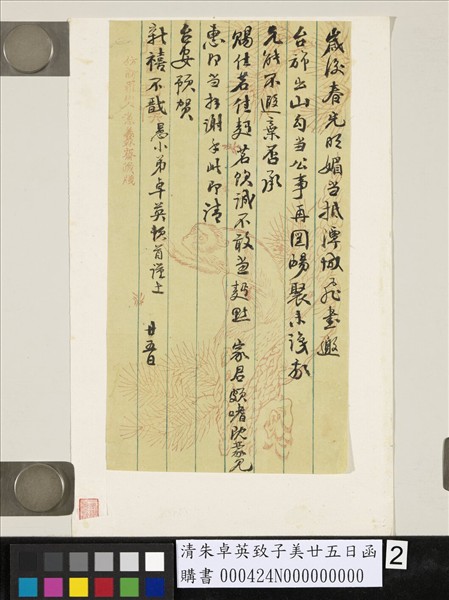 歲後春光明媚當抵潭城飛畫邀
台旆出山勾當公事再圖暢聚未識
兄能不遐棄否承
賜佳茗佳麵茗領誠不敢當麵點 家君頗嗜既蒙兄
惠即當拜謝手此即請
台安預賀
新禧不戩 愚小弟卓英頓首謹上 廿五日
清朱卓英致子美廿五日函
購書 000424N000000000
2